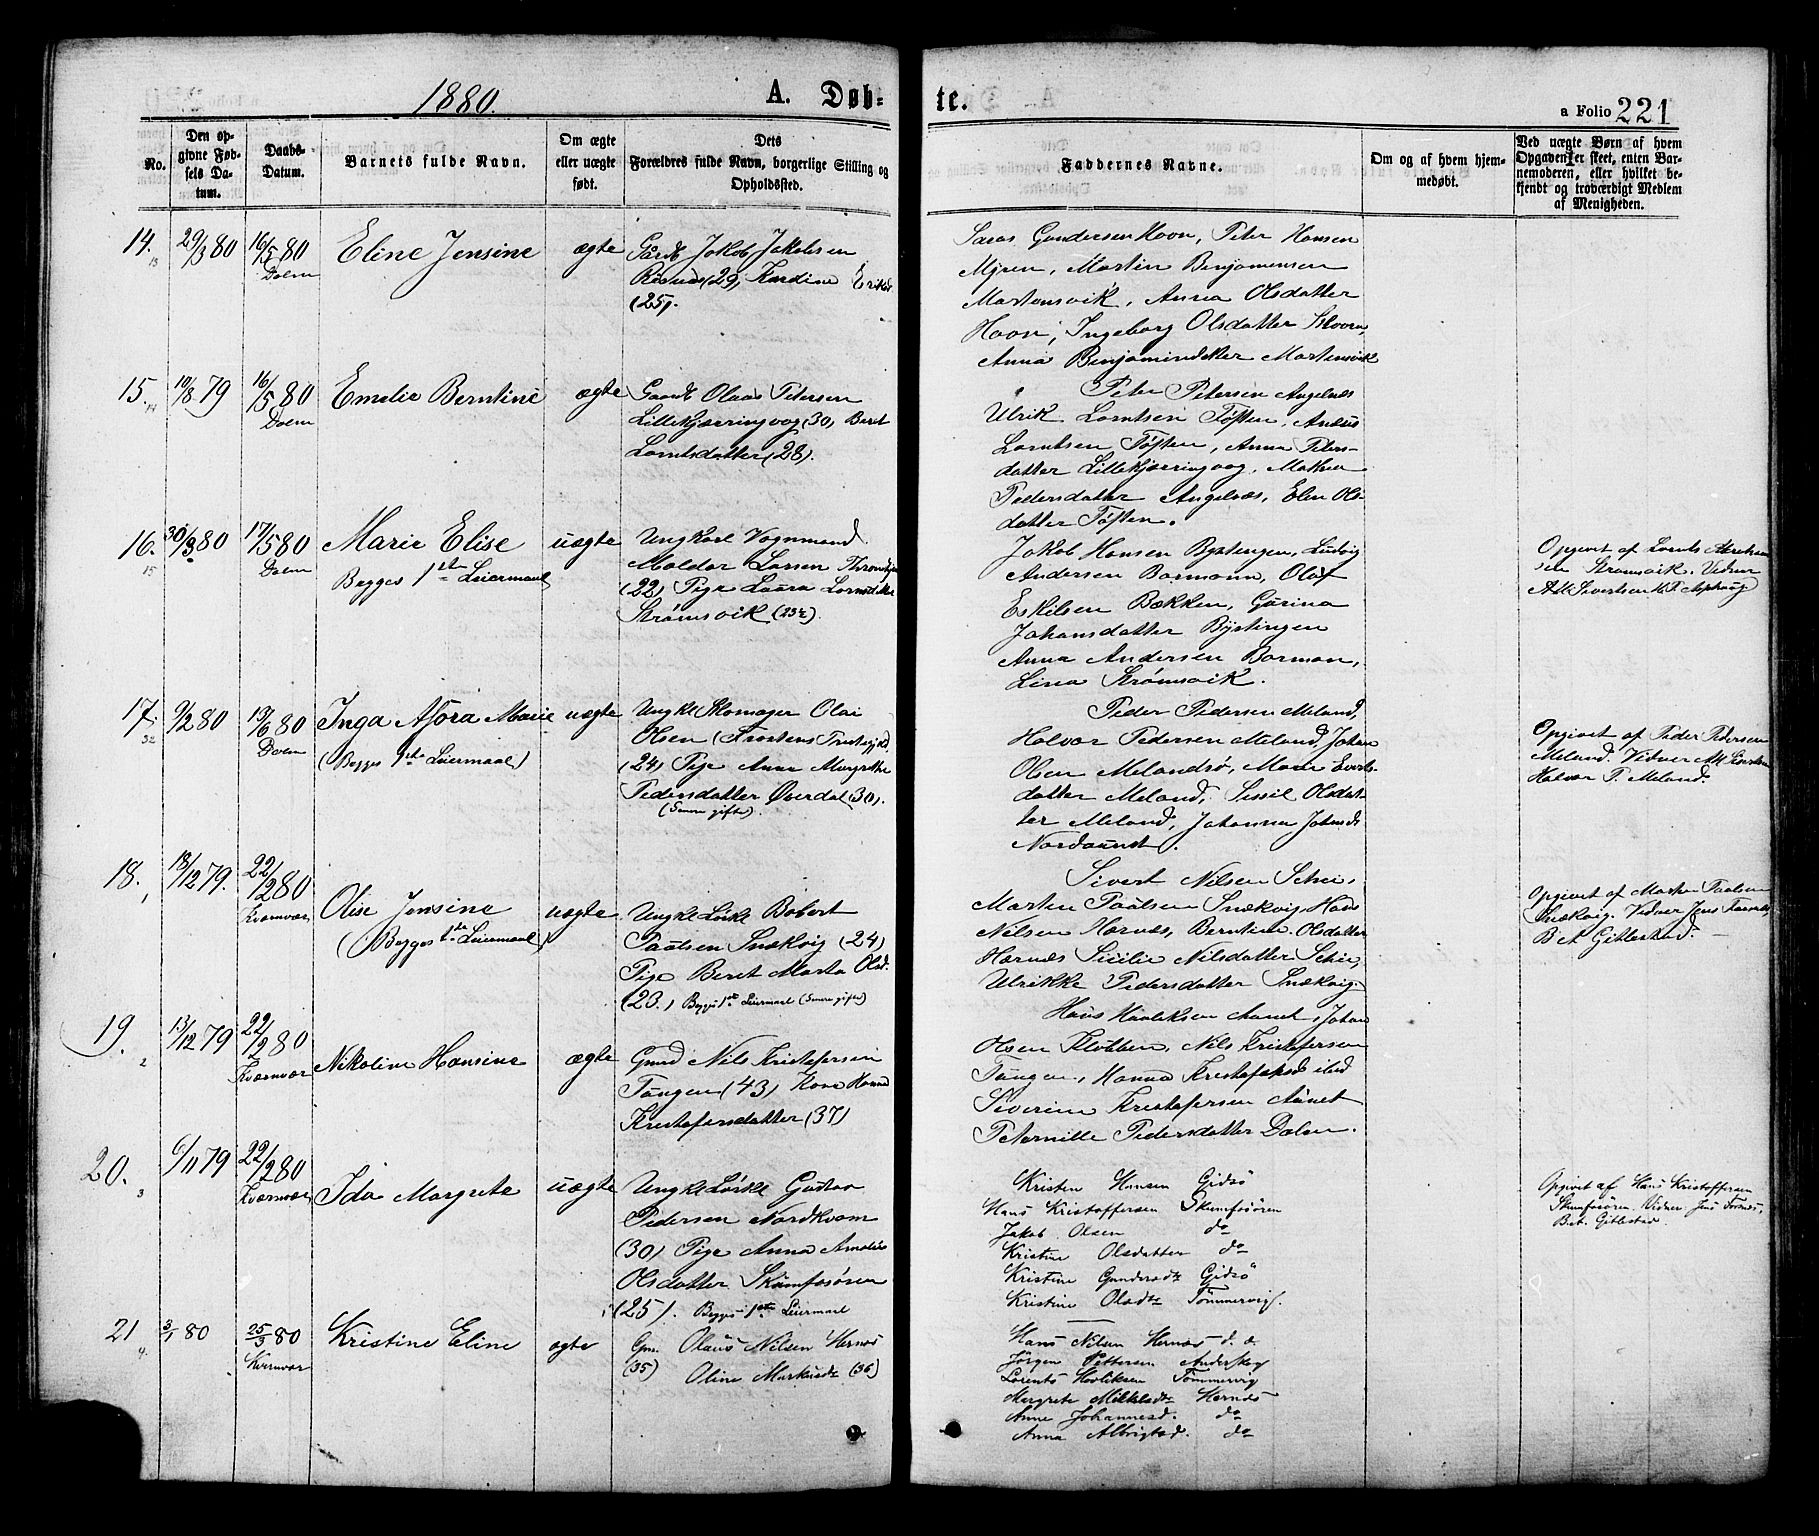 1880. A. Døb- te. a Folio 221
No.
Den opgivne Fødsels Datum.
Daabs-Datum.
Barnets fulde Navn.
Om ægte eller uægte født.
Dets Forældres fulde Navn, borgerlige Stilling og Opholdssted.
Faddernes Navne.
Om og af hvem hjemmedøbt.
Ved uægte Børn af hvem Opgaven er skeet, enten Barnemoderen, eller hvilket bekjendt og troværdigt Medlem af Menigheden.
14. 13 29/3 80 16/5 80 Dolm Eline Jensine ægte
Gårdb Jakob Jakobsen
(29)
(25).
Gundersen Hoon, Peter Hansen
Myren, Martin Benjamensen
Martensvik, Anna Olsdatter
Hoon, Ingeborg Olsdatter
Anna Benjaminsdatter Martensvik
15. 14 10/8 79 16/5 80 Dolm Emelie Berntine ægte
Gaardb Olaus Petersen
Lillekjærringvog (30) Beret
Lorntsdatter (28).
Peter Petersen Angelnæs
Ulrik Lorntsen Tøften,
Lorntsen Tøften, Anna Peters-
datter Lillekjærringvog, Mathea
Pedersdatter Angelnæs, Elen Ols-
datter Tøften.
16. 15 30/3 80 17/5 80 Dolm Marie Elise uægte
Begges 1ste Leiermaal
Ungkarl Vognmand
Larsen
(22) Pige Laura
Strømsvik (23½)
Jakob Hansen Bystingen, Ludvig
Andersen Bormann, Olaf
Eskilsen Bækken, Gurina
Johansdatter Bystingen
Anna Andersen Borman,
Lina Strømsvik.
Opgivet af Lornts
Strømsvik. Vidner
17. 32 9/2 80 13/6 80 Dolm Inga Asora Marie uægte
(Begges 1ste Leiermaal)
Ungkl Skomager Olai
Olsen
(24) Pige Anna Margrethe
Pedersdatter Øverdal (30).
(Senere gifte).
Peder Pedersen Meland,
Halvor Pedersen Meland, Johan
Olsen Melandsø, Marie
datter Meland, Sessil Olsdat-
ter Meland, Johanna
Opgivet af Peder Pedersen
Meland. Vidner
Halvor P. Meland.
18. 1 18/12 79. 22/2 80 Kvænvær Olise Jensine uægte
(Begges 1ste Leiermaal)
Ungkl
Paulsen Snækvig (24)
Pige Beret Marta Olsd.
(23.) Begges 1ste Leiermaal (Senere gifte)
Sivert Nilsen
Morten Paulsen Snækvig, Hans
Nilsen Hernæs, Berntine Olsdatter
Hernæs Sicilie Nilsdatter
Ulrikke Pedersdatter Snækvig.
Opgivet af Morten Paulsen
Snækvig. Vidner Jens
Bet Gitlestad.
19. 2 13/12 79 22/2 80 Kvænvær Nikoline Hansine ægte
Gmd Nils Kristofersen
Tangen (43) Kone Hanna
Kristofersdatter (37)
Hans Havliksen Aunet, Johan
Olsen Klubben, Nils Kristofersen
Tangen, Hanna ibid
Severine Kristofersen Aunet
Peternille Pedersdatter Dalen.
20. 3 6/11 79 22/2 80 Kvænvær Ida Margrete uægte
Ungkl
Pedersen Nordkvam
(30) Pige Anna
Olsdatter Skumfosøren
(25). Begges 1ste Leiermaal
Kristen Hansen Gidsø
Hans Kristoffersen Skumfosøren
Jakob Olsen do
Kristine Olsdatter do
Kristine Gundersdtr Gidsø
Kristine Olsdtr Tømmervig.
Opgivet af Hans Kristoffersen
Skumfosøren. Vidner Jens
Bet. Gitlestad.
21 4. 3/1 80 25/3 80 Kvenvær Kristine Eline ægte
Gm. Olaus Nilsen Hernæs
(35) Oline Markusdtr (36)
Hans Nilsen Hernæs
Jørgen Pettersen Anderskog
Lorents Havliksen Tømmervig
Margrete Mikkelsdtr Hernæs
Anne Johannesd. do
Anna do